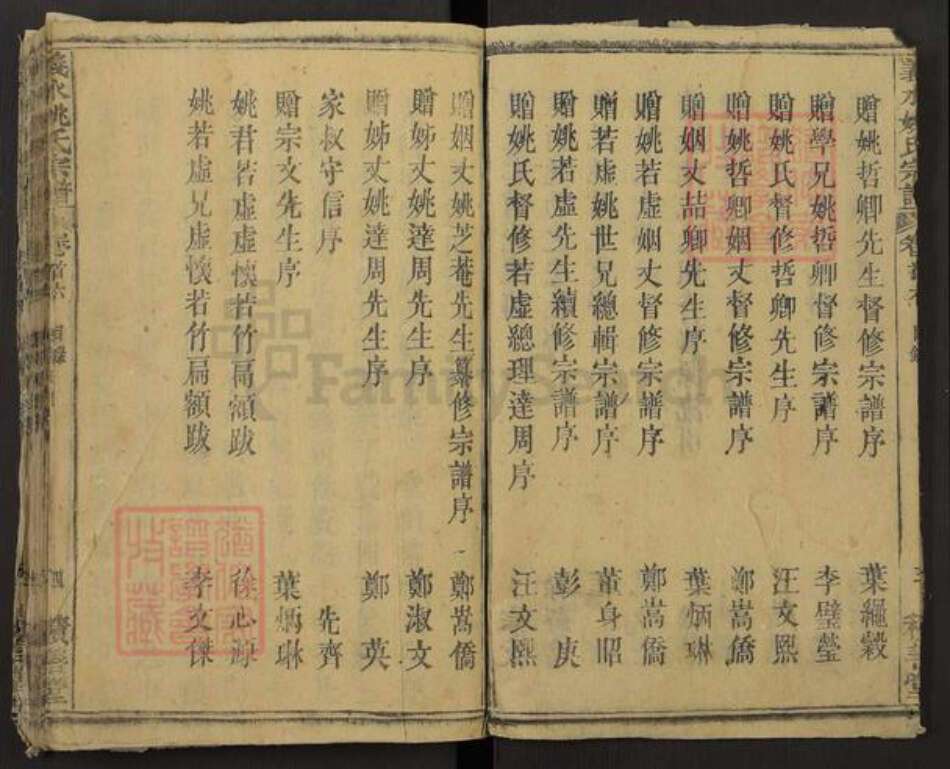 贈姚哲卿先生督修宗譜序 葉繩穀
贈學兄姚哲卿督修宗譜序 李璧瑩
贈姚氏督修哲卿先生序 汪文熙
贈姚哲卿姻丈督修宗譜序 鄭嵩僑
贈姻丈喆卿先生序 葉炳琳
贈姚若虛姻丈督修宗譜序 鄭嵩僑
贈若虛姚世兄總輯宗譜序 董身昭
贈姚若虛先生續修宗譜序 彭庚
贈姚氏督修若虛總理達周序 汪文熙
贈姻丈姚芝菴先生纂修宗譜序 鄭嵩僑
贈姊丈姚達周先生序 鄭淑文
贈姊丈姚達周先生序 鄭英
家叔守信序 先齊
贈宗文先生序 葉炳琳
姚君若虛虛懷若竹扁額跋 徐心源
姚若虛兄虛懷若竹扁額跋 李文傑
義水姚氏宗譜 卷首六 目錄 四
FamilySearch